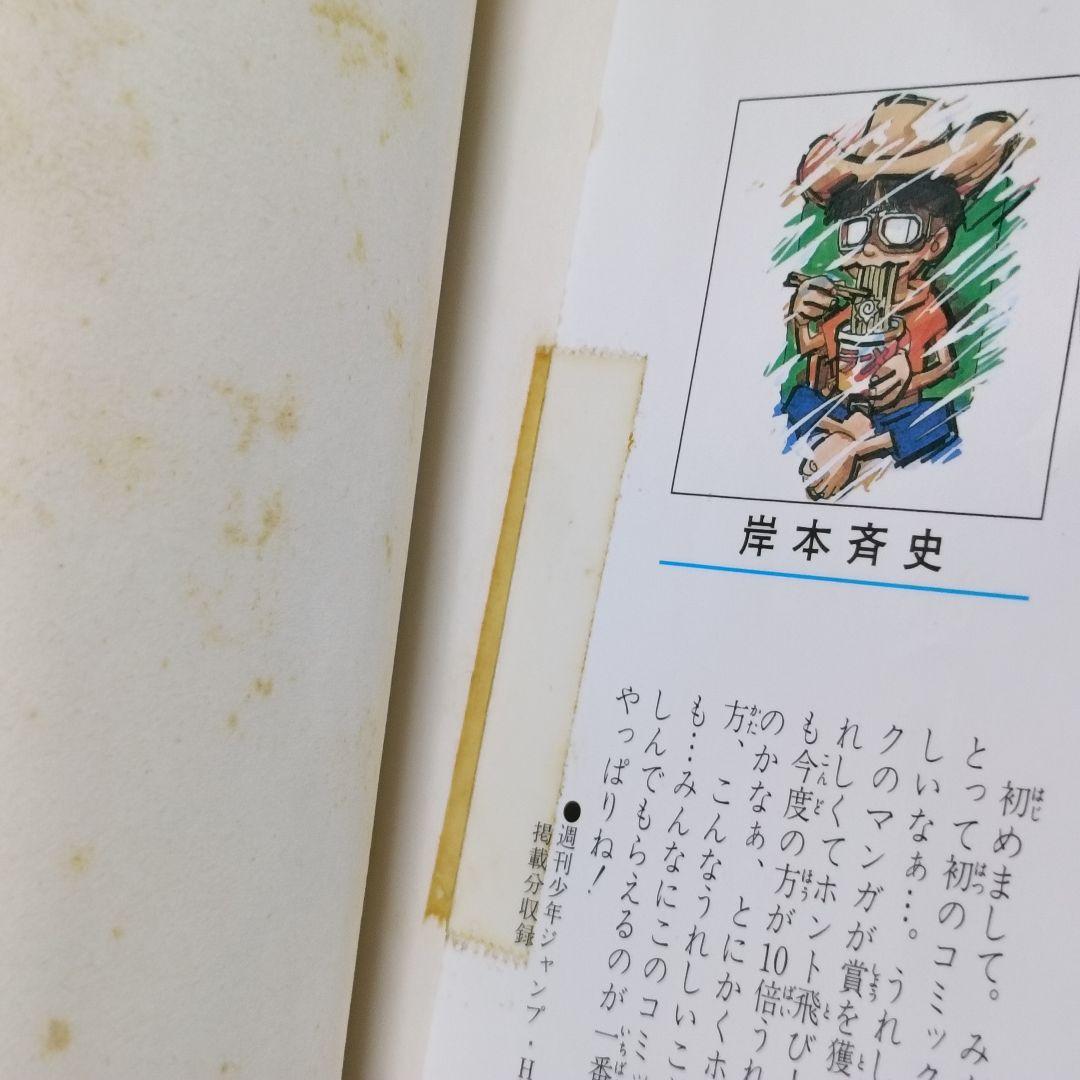 ラーメン
岸本斉史
初めまして。み
とって初のコミック
しいなぁ…。うれし
クのマンガが賞を獲
れしくてホント飛び
も今度の方が10倍うれ
のかなぁ、とにかくホ
方、こんなうれしいこ
も…みんなにこのコミ
しんでもらえるのが一番
やっぱりね！
●週刊少年ジャンプ・H
掲載分収録